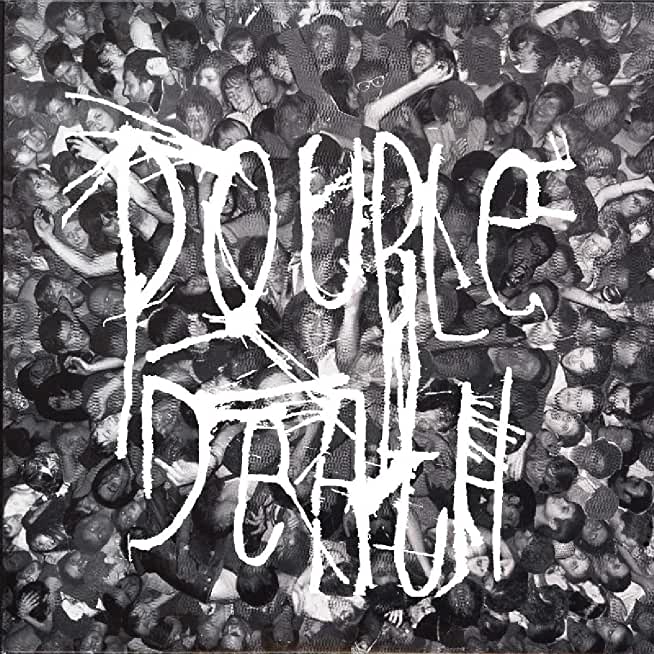 DOUBLE
DEATH